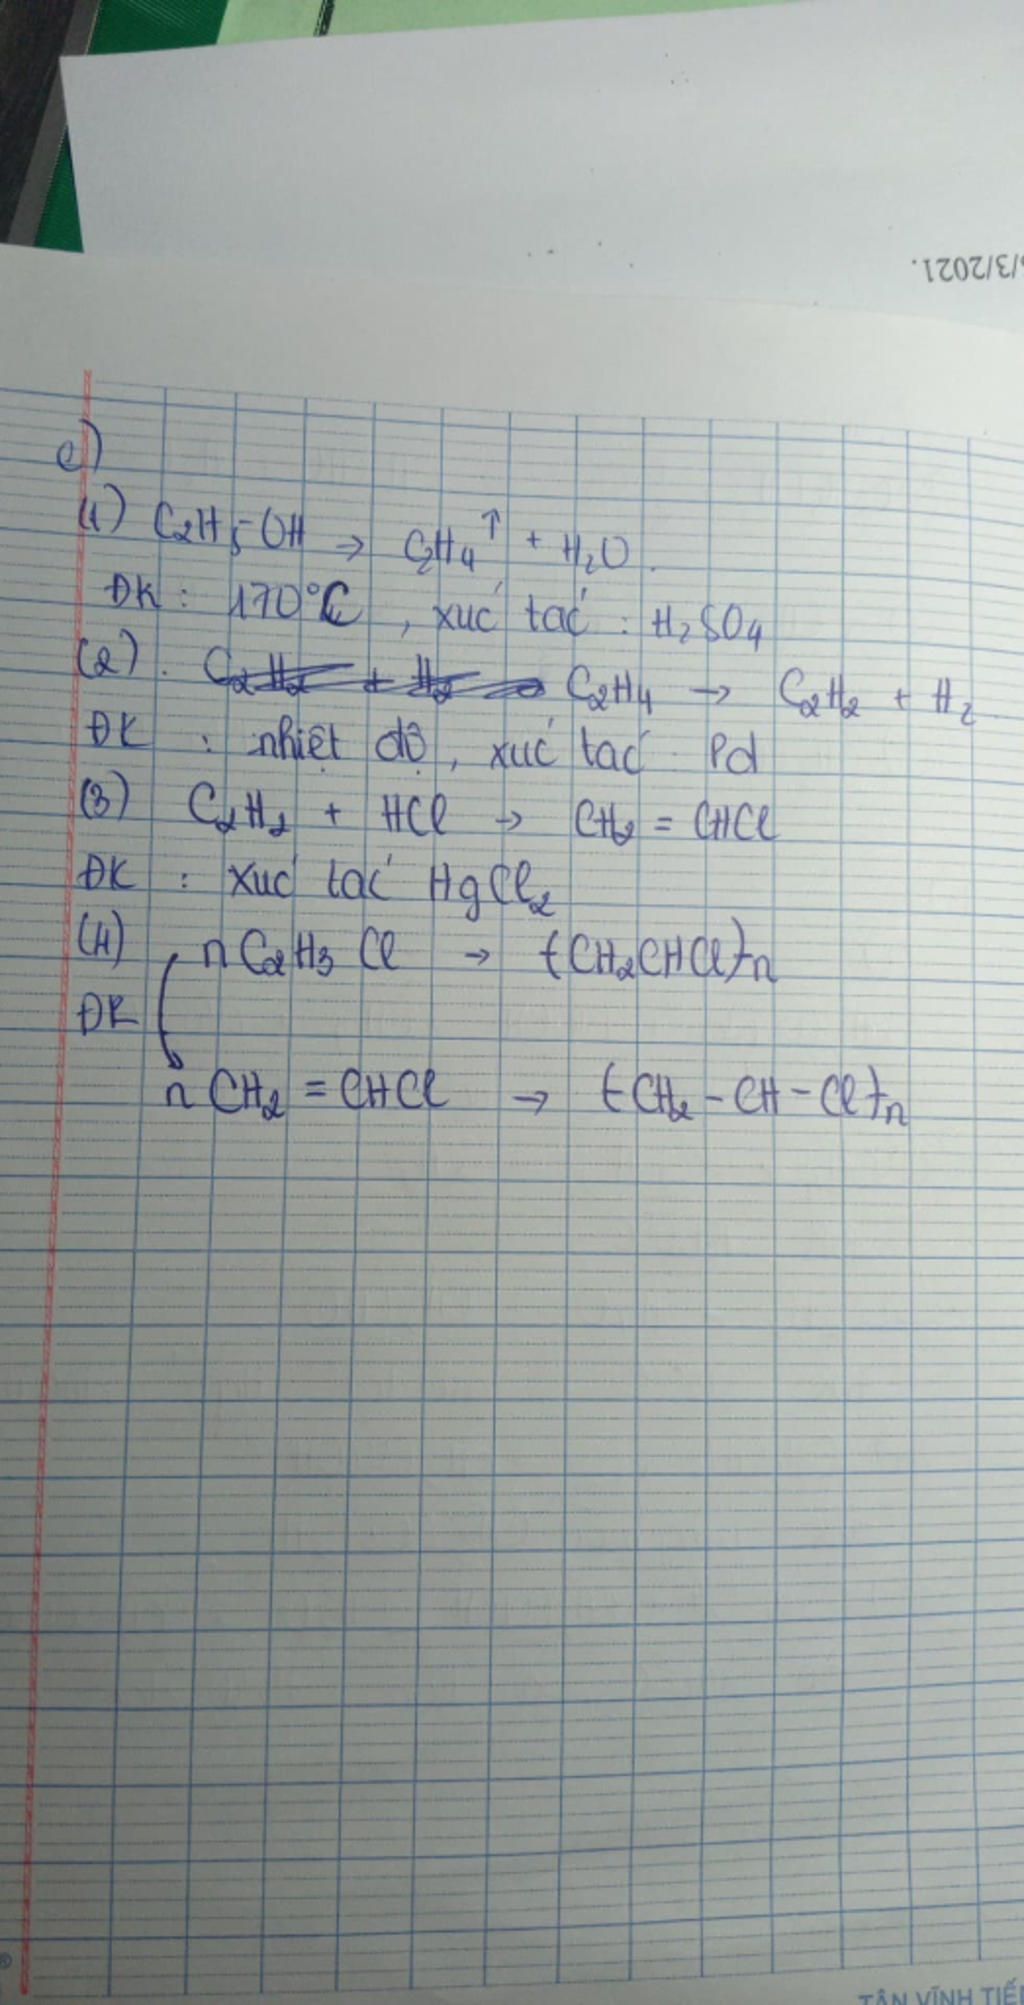 5/3/2021.
e)
(1) C2H5-OH → C2H4↑ + H2O.
ĐK : 170°C, xúc tác : H2SO4
(2). C2H2 + H2 → C2H4 → C2H2 + H2
ĐK : nhiệt độ, xúc tác Pd
(3) C2H2 + HCl → CH2 = CHCl
ĐK : xúc tác HgCl2
(4) nC2H3Cl → (CH2CHCl)n
ĐK
nCH2 = CHCl → (CH2-CH-Cl)n
TÂN VĨNH TIẾ